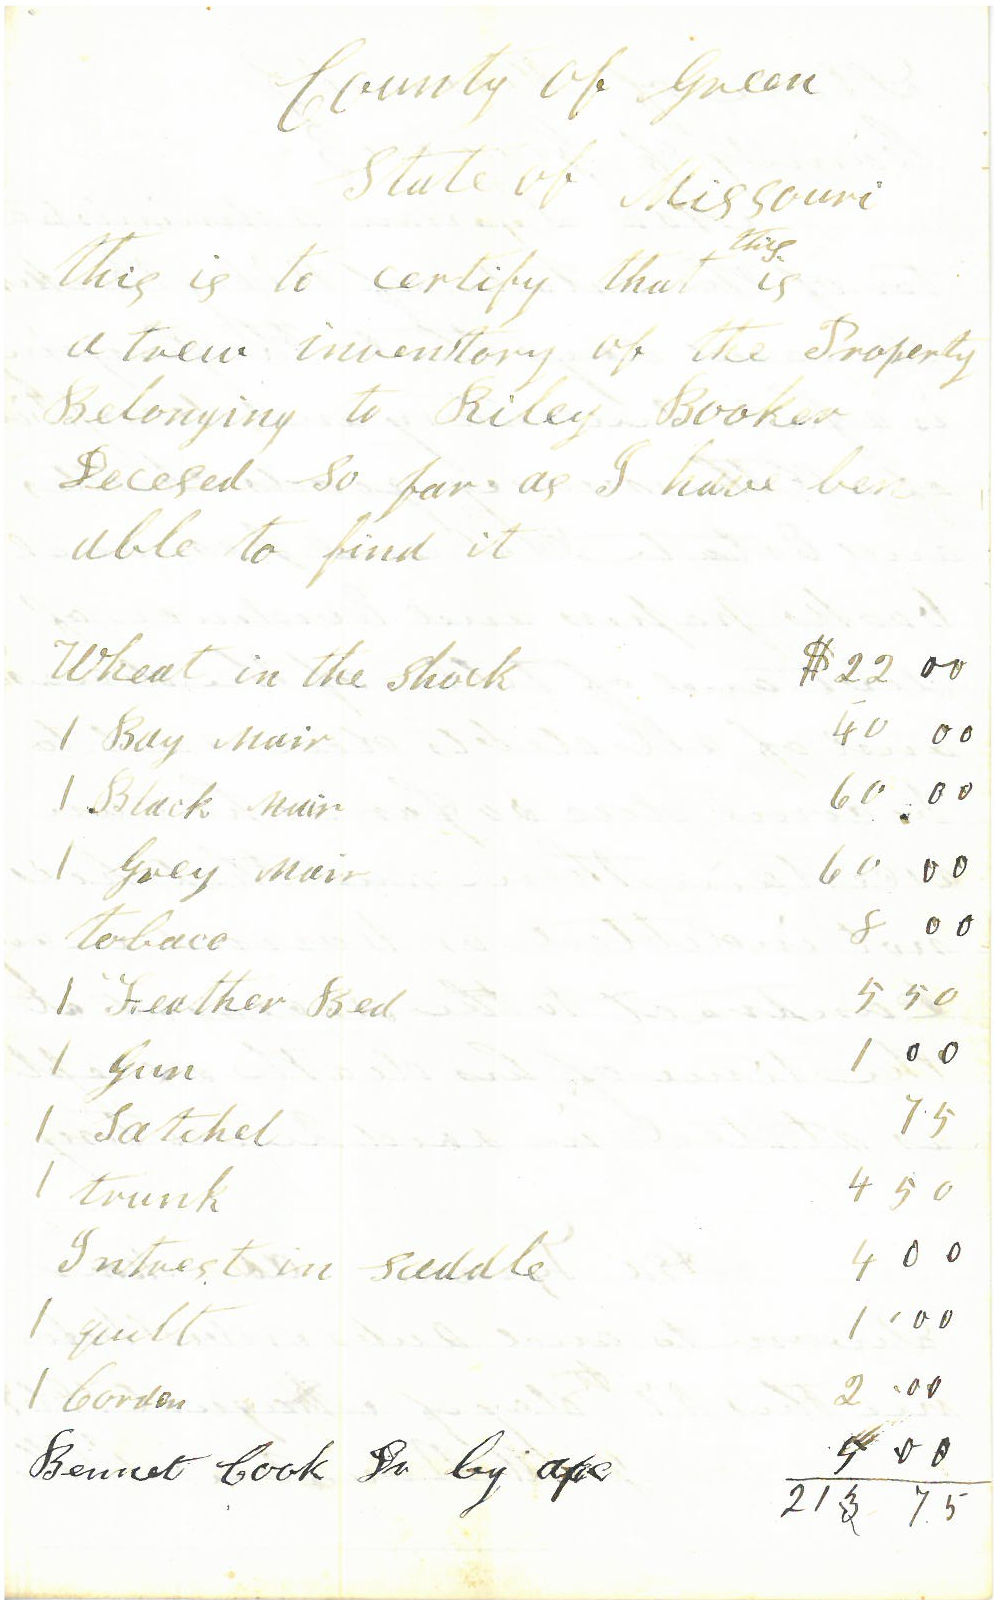 County of Green
State of Missouri
this is to certify that this is
a trew inventory of the Property
Belonging to Riley Booker
Decesed so far as I have ben
able to find it
Wheat in the shock $22 00
1 Bay Mair 40 00
1 Black Mair 60 00
1 Grey Mair 60 00
tobaco 8 00
1 Feather Bed 5 50
1 Gun 1 00
1 Satchel 75
1 trunk 4 50
Intrest in saddle 4 00
1 quilt 1 00
1 2 00
Bennet Cook Dr by 00
213 75